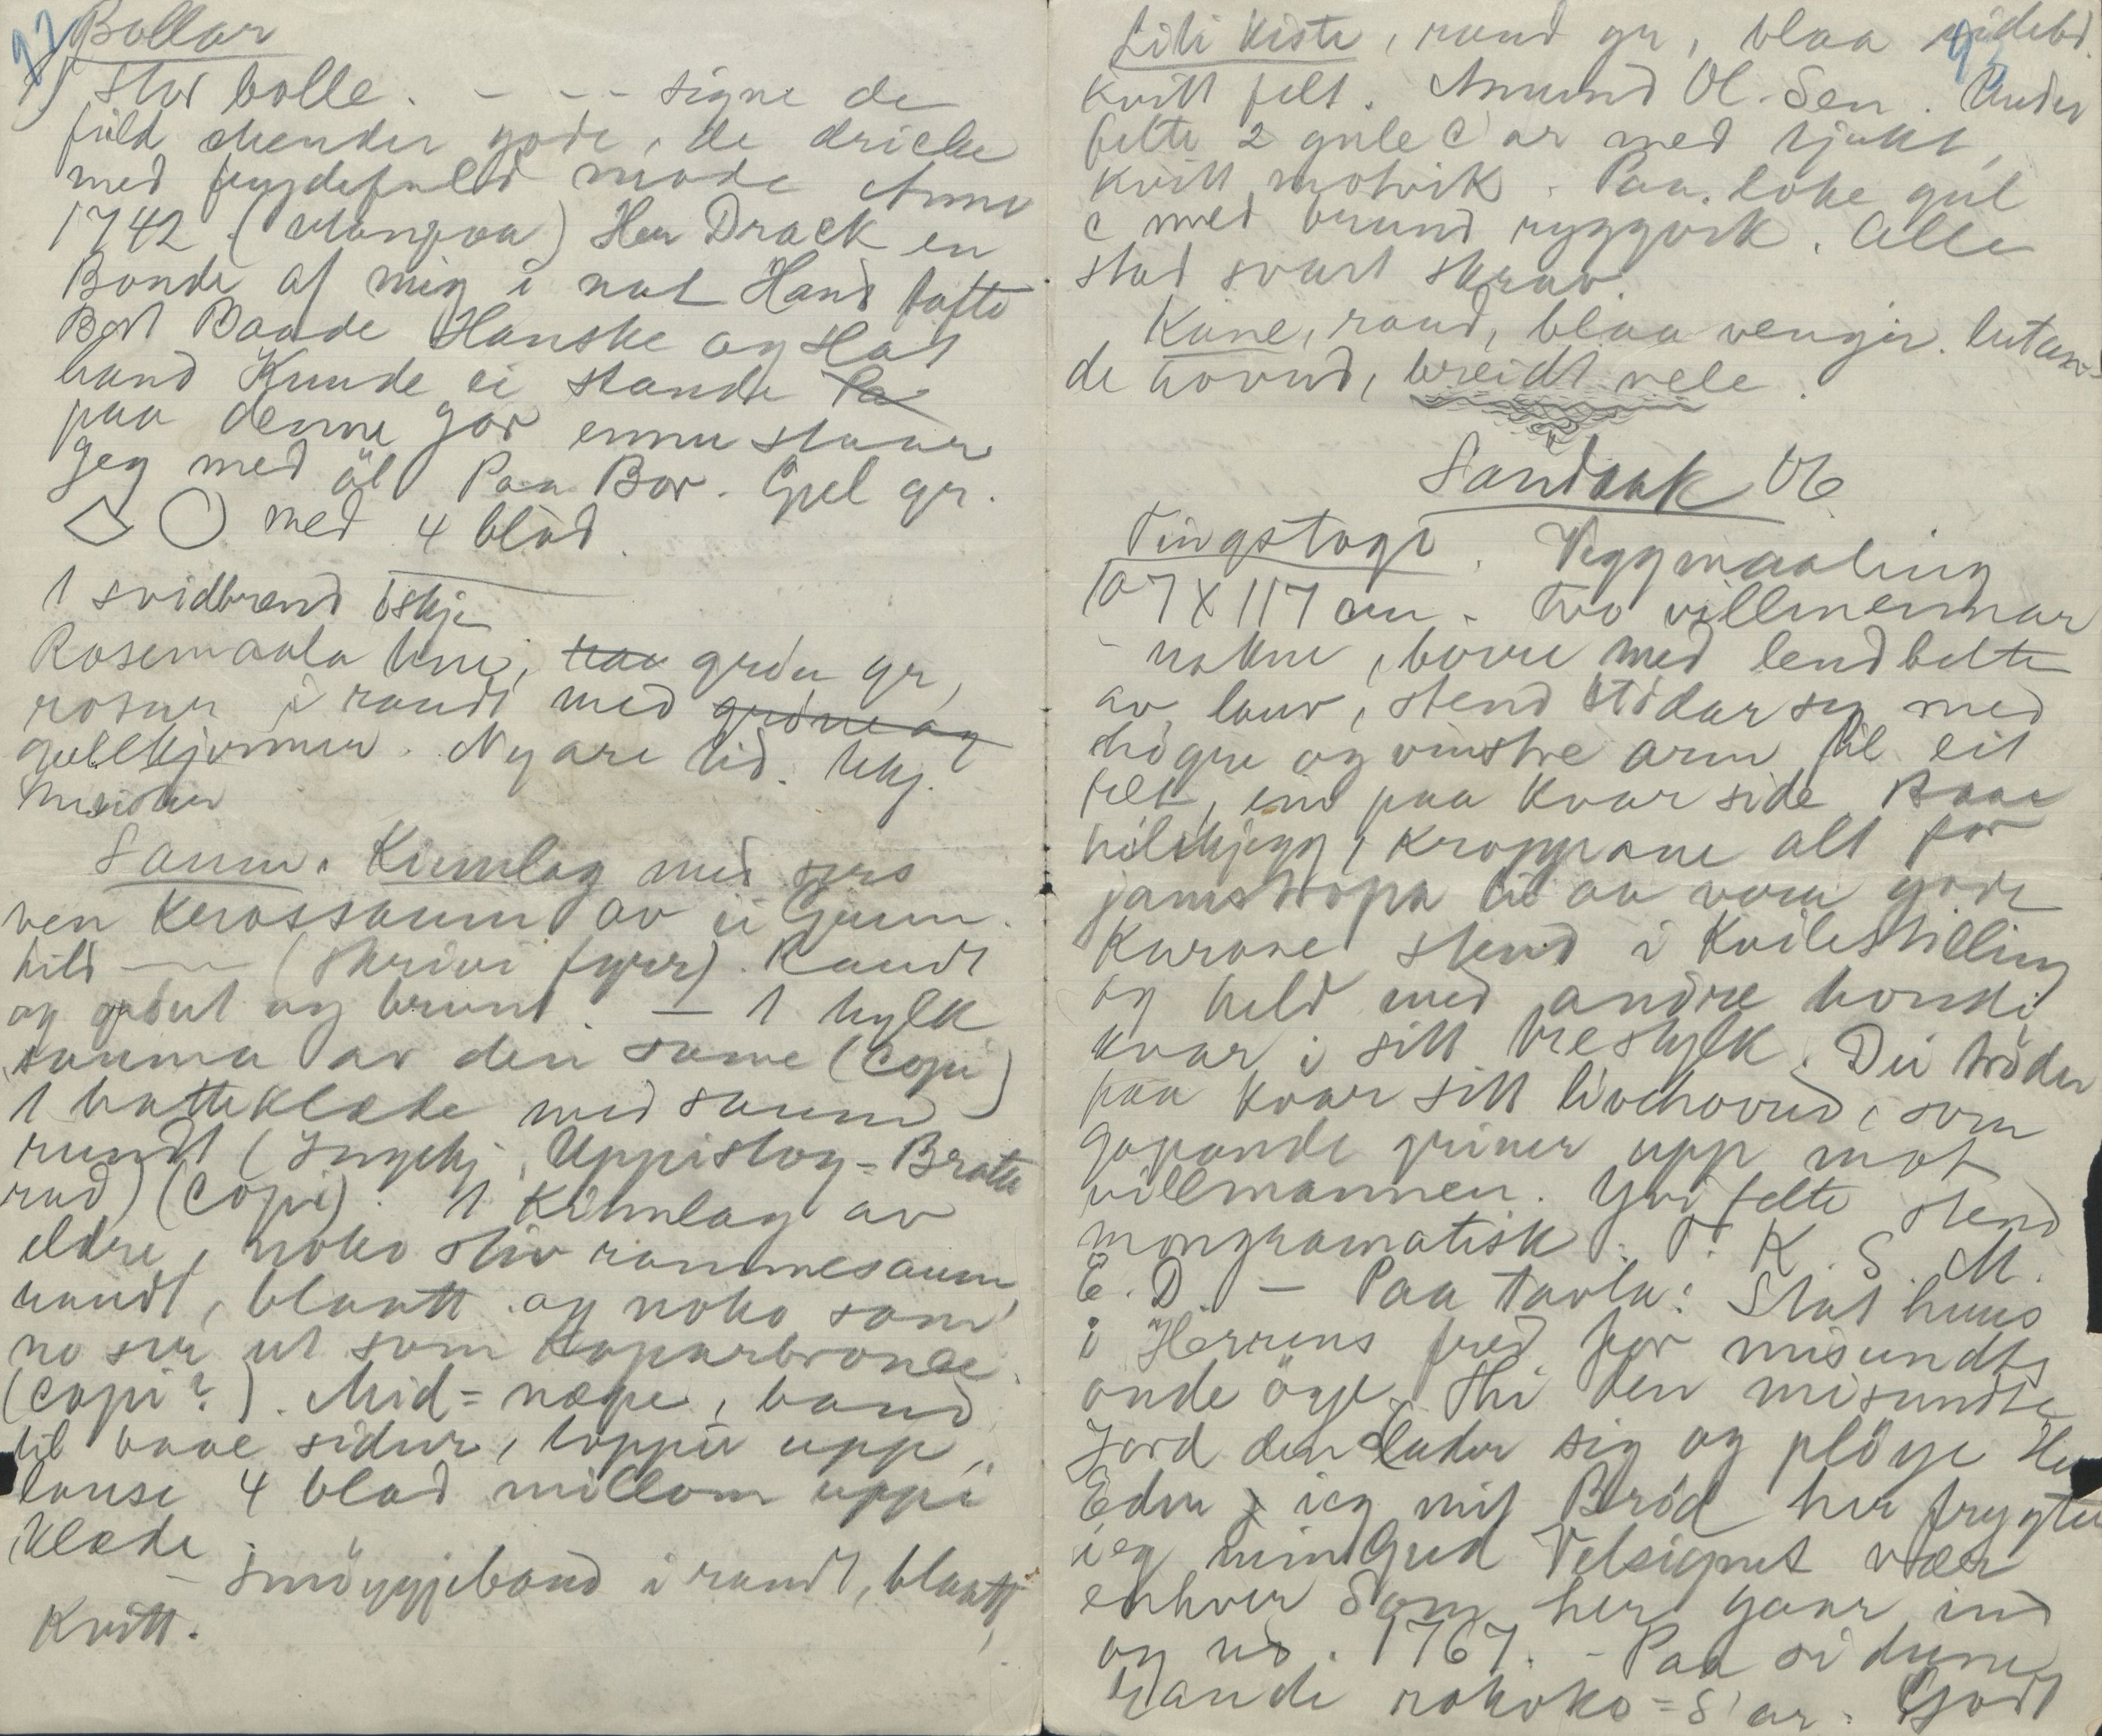 92
Bollar
1) Stor bolle. - - - signe de
fuld Mender gode, de dricke
med frygdefuld mode Anno
1742. (Utanpaa) Her Drack en
Bonde af mig i nat Hand satte
Bort Baade Hanske og Hat
hand Kunde ei stande
paa denne Jor ennu staar
Jeg med øl Paa Bor. Gul gr.
med 4 blad.
1 svidbrend öskje
Rosemaala tine, grön gr,
rosur i raudt med gröne og
gullkjonnur. Nyare tid. Ukj.
Saum. Kinnlag med
ven Krossaum av ei Gunn-
hild — (Skrivi fyrr). Raudt
og grönt og brunt. — 1 hylk
sauma av den same (Copi)
1 hatteklæde med saum
rundt (Ingebj. Uppistog=Bratte
rud) (Copi). 1 Kinnlag av
eldre, noko stiv rammesaum,
raudt, blaatt og noko som
no ser ut som Koparbronse
(copi?). Mid=nepe, band
til baae sidur, loppii upp,
lause 4 blad millom uppi
Klæde.
- Smöyggjeband i raudt, blaatt,
Kvitt.
93
Liti Kiste, raud gr, blaa
Kvitt felt. Amund Ol. Sen. Under
felte 2 gule C'ar med tjukt,
kvitt motvik. Paa loke gul
C med brund ryggvik. Alle
stad svart skrav.
Kane, raud, blaa vengir. lutan-
de hovud, breidt vele.
Sandaak Ob
Tingstogo. Veggmaaling
107 X 117 cm. Tvo villmennar
- nakne, berre med lendbelte
av lauv, stend stödar seg med
högre og vinstre arm til eit
felt, ein paa kvar side Baae
hilskjegg, kroppane alt for
jamstropa til aa vera gode
Karane stend i Kvilestilling
og held med andre hondi
kvar i sitt trestykk. Dei tröder
paa kvar sitt livehovud, som
gapande griner upp mot
villmannen. Yvi felte stend
mongramatisk: T. K. S. M.
E. D. — Paa tavla: Stat huus
i Herrens fred for misundts
onde öye. Thi den misundte
Jord den lader sig og plöye Her
Eder ieg mit Bröd her frygter
ieg min Gud Velsignet vær
enhver Som her gaar ind
og ud. 1767. - Paa sidune
rokoko=S'ar. Godt